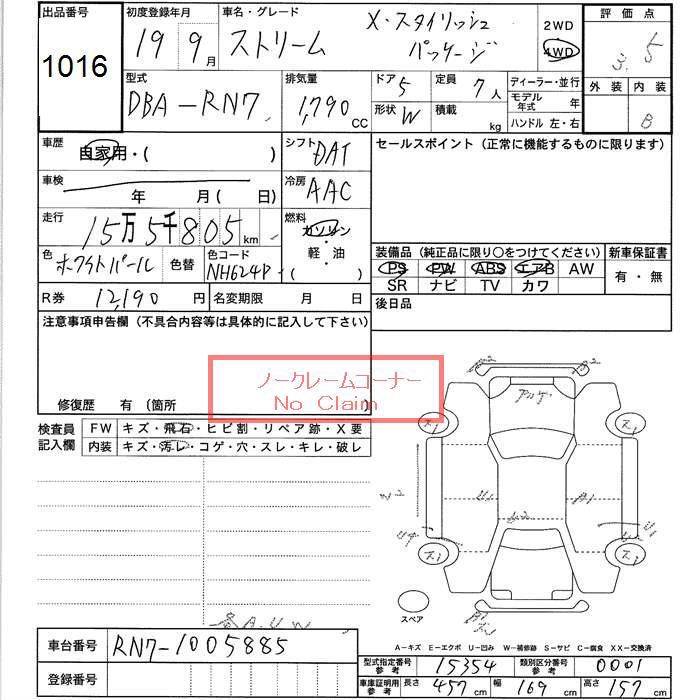 出品番号
1016
初度登録年月
19 9月
車名・グレード
ストリーム
X・スタイリッシュ
パッケージ
2WD
4WD
評価点
3.5
外装 内装
B
型式
DBA-RN7
排気量
1,790 CC
ドア 5
形状 W
定員 7人
積載 kg
ディーラー・並行
モデル年式 年
ハンドル 左・右
車歴
自家用・( )
シフト
DAT
セールスポイント (正常に機能するものに限ります)
車検
年 月( 日)
冷房
AAC
走行
15万5千805km
燃料
ガソリン
・
軽・油
・( )
色
ホワイトパール
色替
色コード
NH624P
装備品 (純正品に限り○をつけてください)
PS PW ABS エアB AW
SR ナビ TV カワ
新車保証書
有・無
R券 12,190円
名変期限 月 日
後日品
注意事項申告欄 (不具合内容等は具体的に記入して下さい)
ノークレームコーナー
No Claim
修復歴 有 (箇所
検査員
記入欄
FW キズ・飛石・ヒビ割・リペア跡・X要
内装 キズ・汚レ・コゲ・穴・スレ・キレ・破レ
スペア
A-キズ E-エクボ U-凹み W-補修跡 S-サビ C-腐食 XX-交換済
車台番号 RN7-1005885
登録番号
型式指定番号
参考
15354
類別区分番号
参考
0001
車庫証明用
参考
長さ 457cm 幅 169cm 高さ 157cm